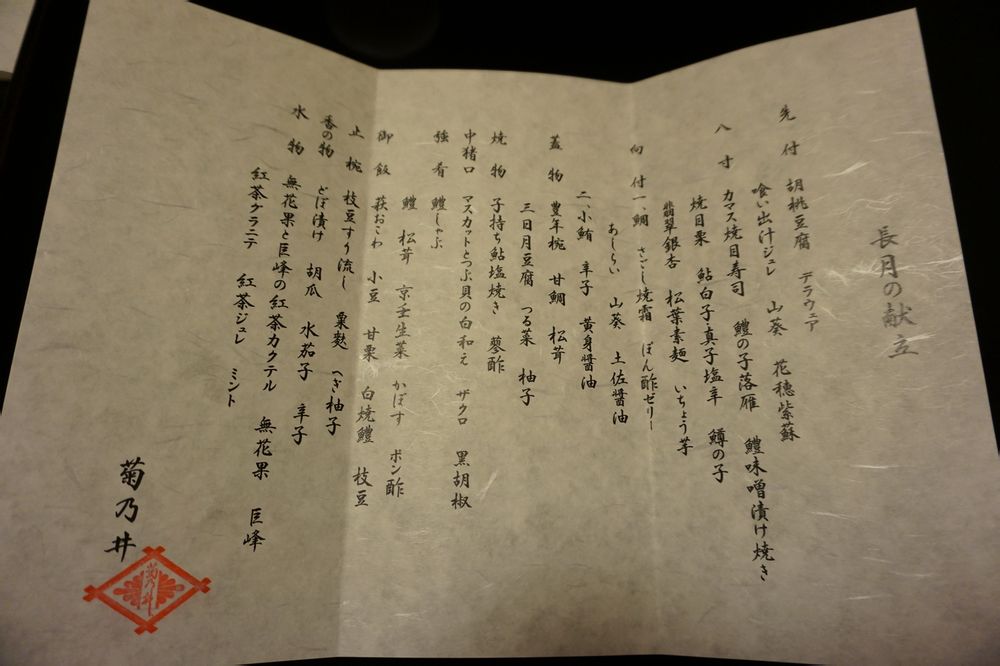 長月の献立
先付 胡桃豆腐 デラウェア
喰い出汁ジュレ 山葵 花穂紫蘇
八寸 カマス焼目寿司 鱧の子落雁 鱧味噌漬け焼き
焼目栗 鮎白子・真子塩辛 鱒の子
翡翠銀杏 松葉素麺 いちょう芋
向付 一、鯛 さごし焼霜 ぽん酢ゼリー
あしらい 山葵 土佐醬油
二、小鮪 辛子 黄身醬油
蓋物 豊年椀 甘鯛 松茸
三日月豆腐 つる菜 柚子
焼物 子持ち鮎塩焼き 蓼酢
中猪口 マスカットとつぶ貝の白和え ザクロ 黒胡椒
強肴 鱧しゃぶ
鱧 松茸 京壬生菜 かぼす ポン酢
御飯 萩おこわ 小豆 甘栗 白焼鱧 枝豆
止椀 枝豆すり流し 粟麩 へぎ柚子
香の物 どぼ漬け 胡瓜 水茄子 辛子
水物 無花果と巨峰の紅茶カクテル 無花果 巨峰
紅茶グラニテ 紅茶ジュレ ミント
菊乃井
菊乃井